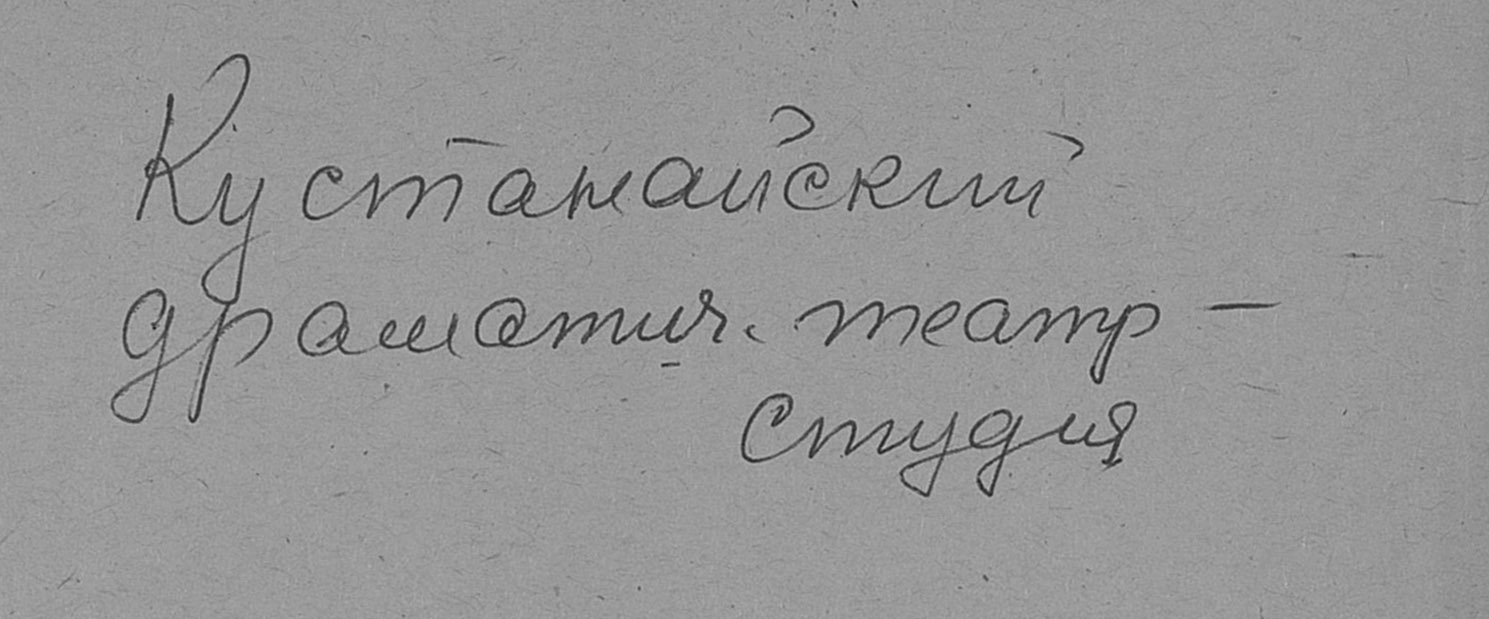 Кустанайский
драматич. театр –
студия